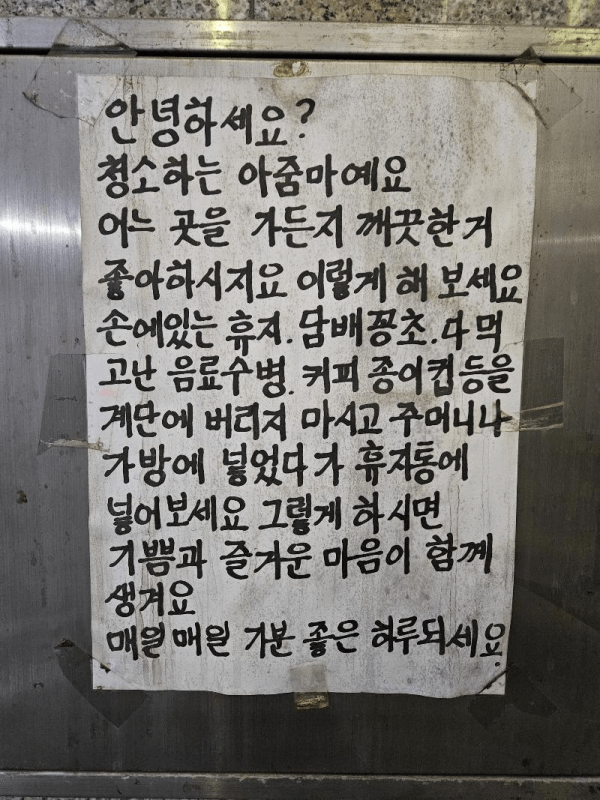 안녕하세요?
청소하는 아줌마예요
어느 곳을 가든지 깨끗한거
좋아하시지요 이렇게 해 보세요
손에있는 휴지. 담배꽁초. 다 먹
고난 음료수병. 커피 종이컵등을
계단에 버리지 마시고 주머니나
가방에 넣었다가 휴지통에
넣어보세요 그렇게 하시면
기쁨과 즐거운 마음이 함께
생겨요
매일매일 기분 좋은 하루되세요.